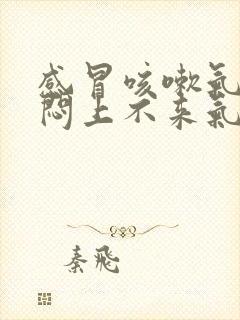 感冒咳嗽氣
悶上不来氣
秦飛